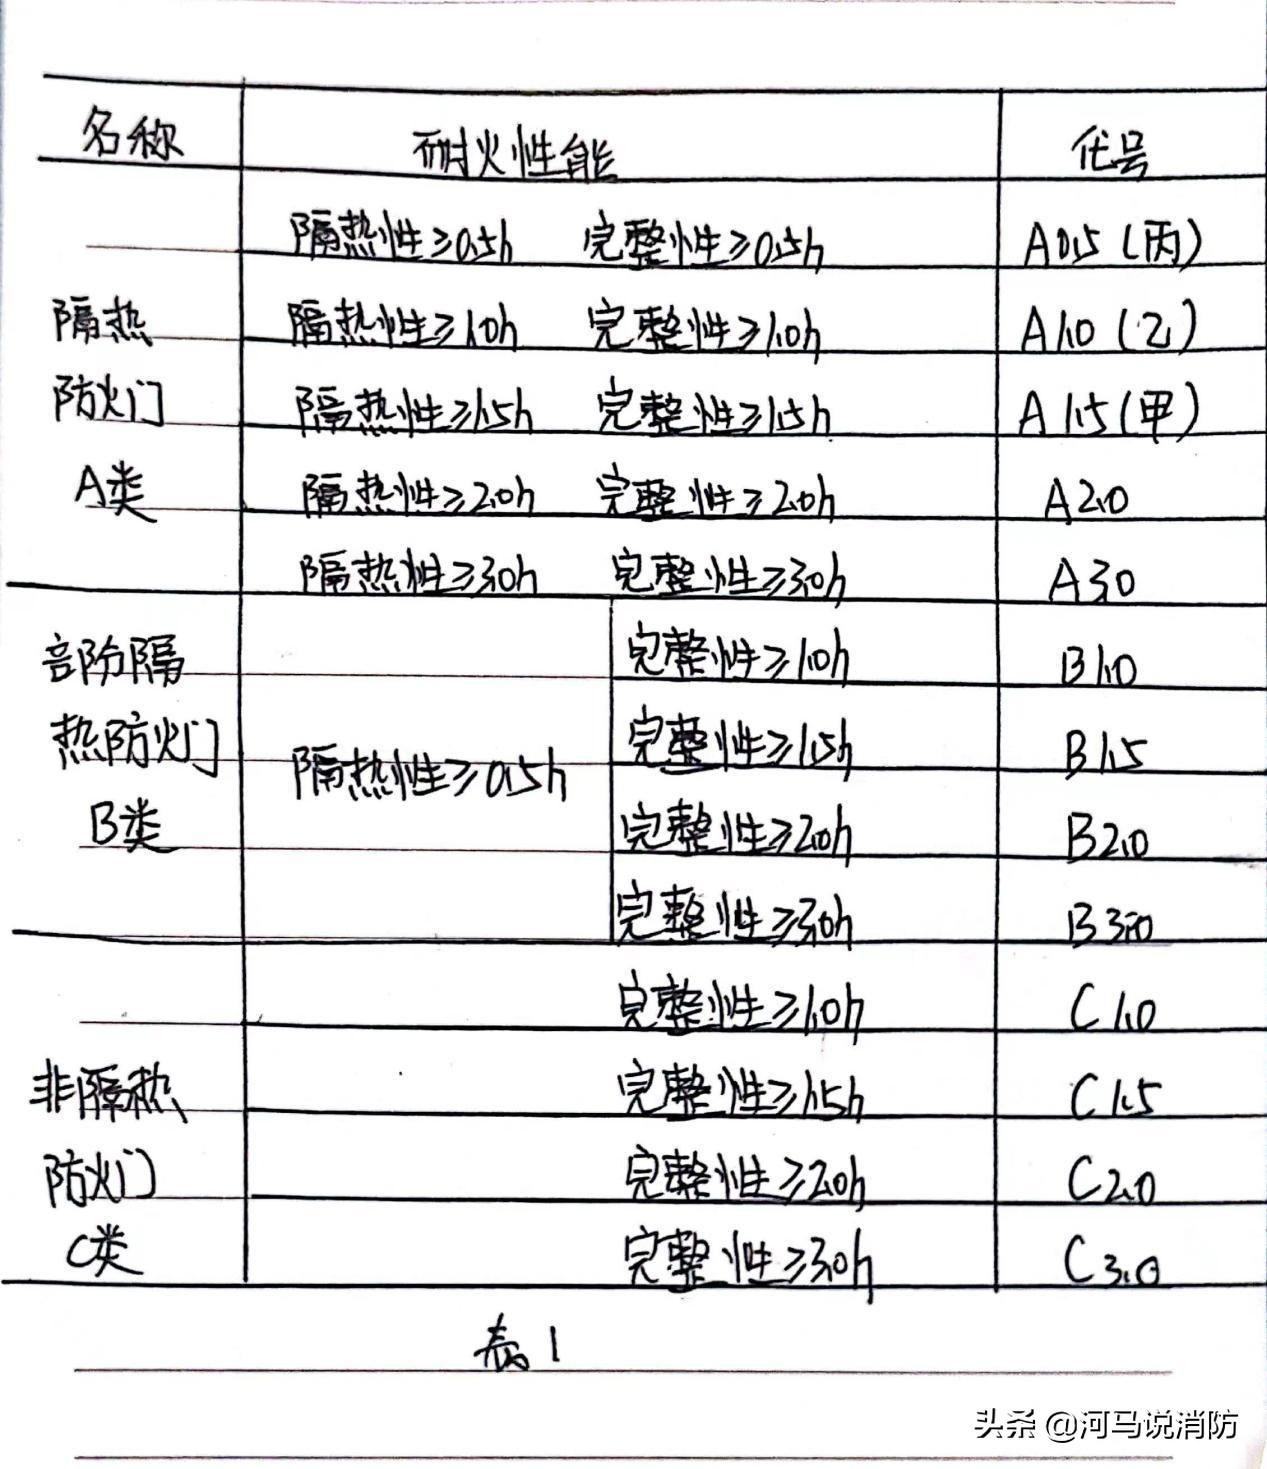 名称 耐火性能 代号
隔热性≥0.5h 完整性≥0.5h A0.5(丙)
隔热 隔热性≥1.0h 完整性≥1.0h A1.0(乙)
防火门 隔热性≥1.5h 完整性≥1.5h A1.5(甲)
A类 隔热性≥2.0h 完整性≥2.0h A2.0
隔热性≥3.0h 完整性≥3.0h A3.0
部分隔 完整性≥1.0h B1.0
热防火门 隔热性≥0.5h 完整性≥1.5h B1.5
B类 完整性≥2.0h B2.0
完整性≥3.0h B3.0
完整性≥1.0h C1.0
非隔热 完整性≥1.5h C1.5
防火门 完整性≥2.0h C2.0
C类 完整性≥3.0h C3.0
表1
头条 @河马说消防